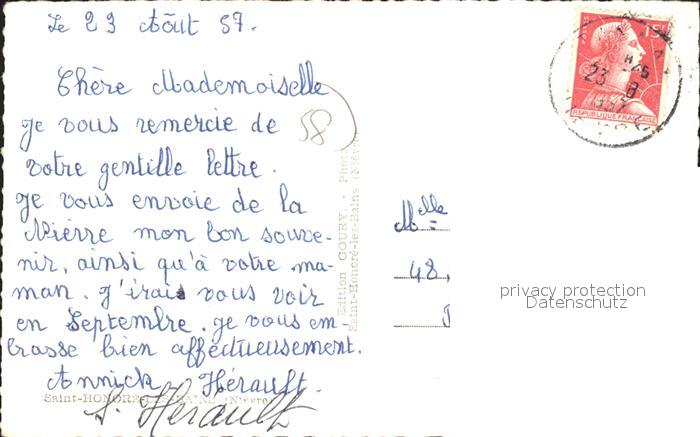 Le 23 Août 57.
Chère Mademoiselle
je vous remercie de
votre gentille lettre.
je vous envoie de la
Nièvre mon bon souve-
nir, ainsi qu'à votre ma-
man. J'irais vous voir
en Septembre. je vous em-
brasse bien affectueusement.
Annick Hérault.
S. Herault
Saint-HONORÉ-LES-BAINS (Nièvre)
58
Edition COURY. - Phot.
Saint-Honoré-les-Bains (Nièvre)
Mlle
48,
privacy protection
Datenschutz
15F
23 - 8
1957
REPUBLIQUE FRANÇAISE